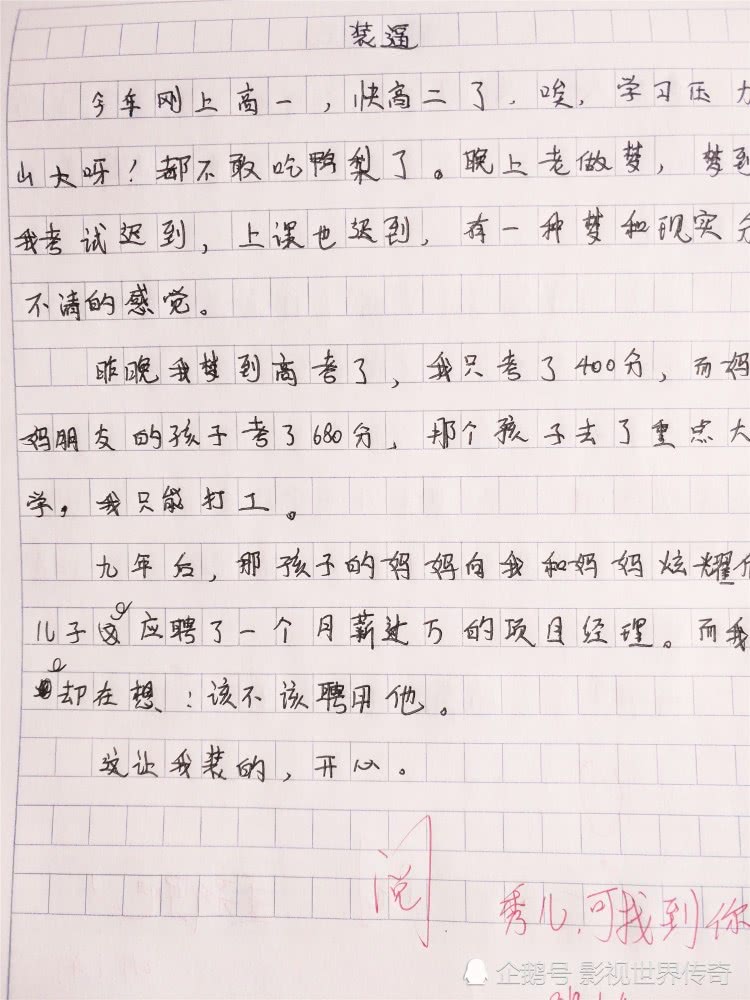 装逼
今年刚上高一，快高二了，唉，学习压力
山大呀！都不敢吃鸭梨了。晚上老做梦，梦到
我考试迟到，上课也迟到，有一种梦和现实分
不清的感觉。
昨晚我梦到高考了，我只考了400分，而妈
妈朋友的孩子考了680分，那个孩子去了重点大
学，我只能打工。
九年后，那孩子的妈妈向我和妈妈炫耀
儿子应聘了一个月薪过万的项目经理。而我
却在想：该不该聘用他。
这让我装的，开心。
阅
秀儿，可找到你
企鹅号 影视世界传奇